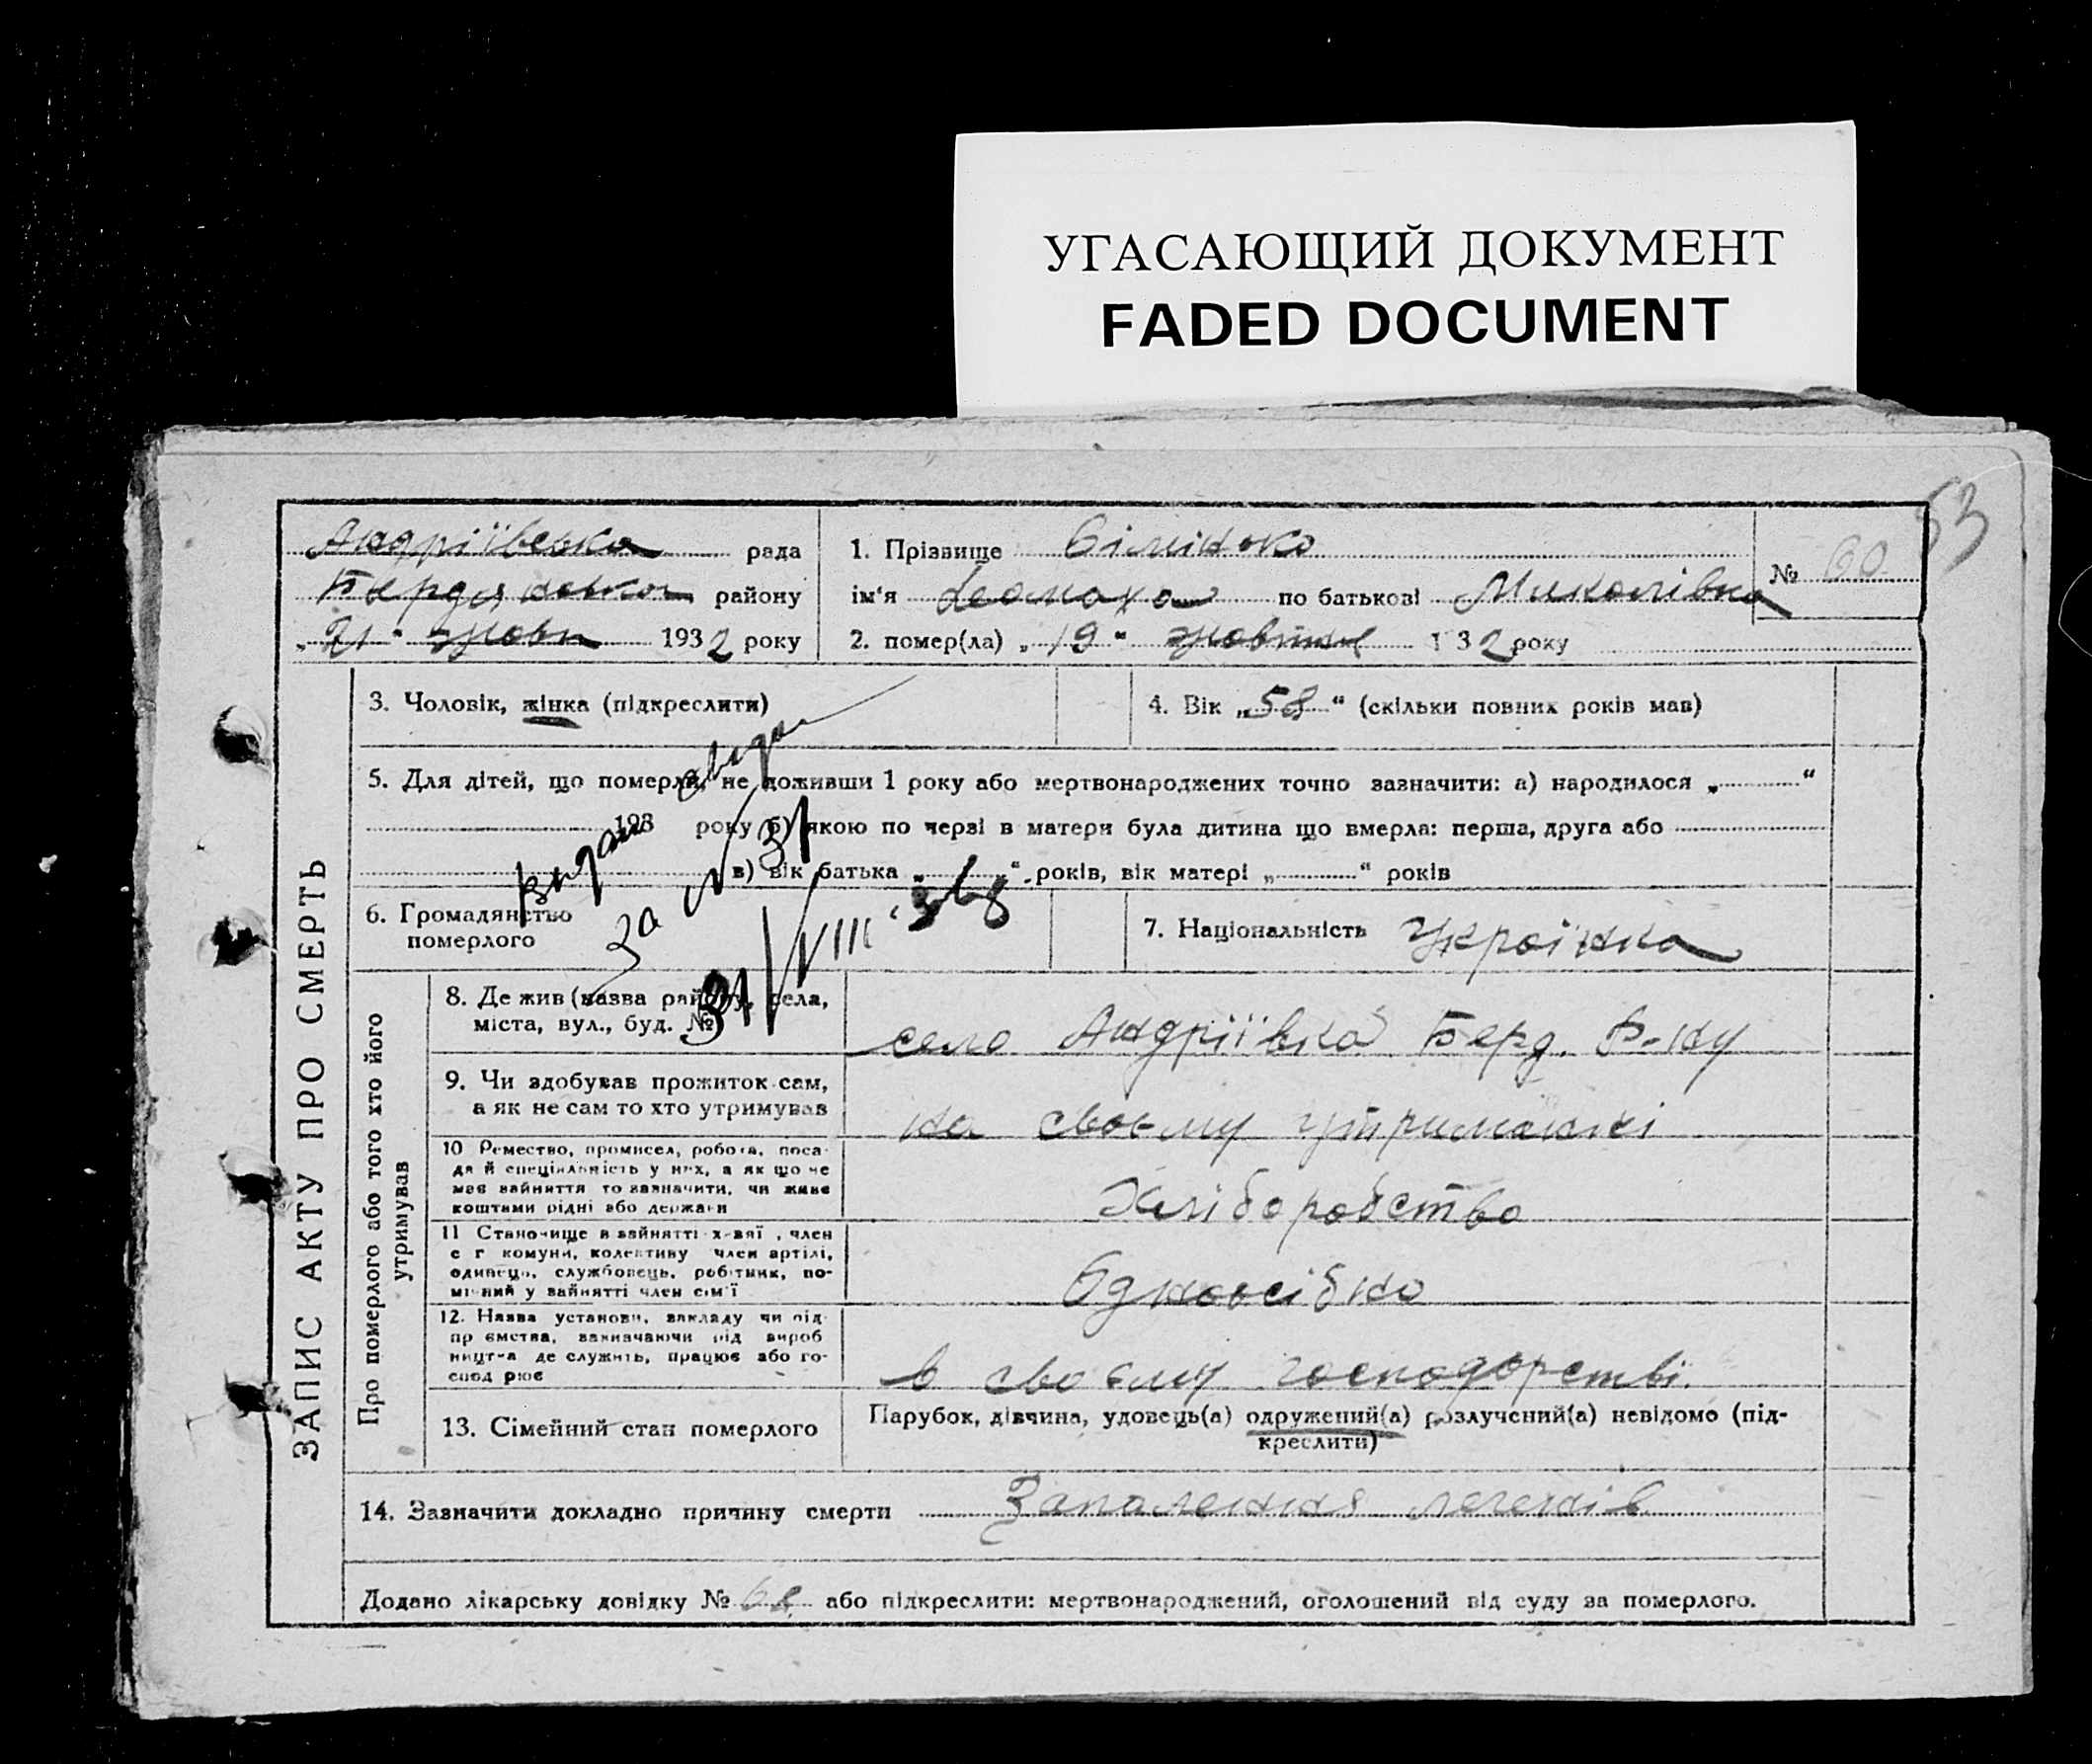 УГАСАЮЩИЙ ДОКУМЕНТ
FADED DOCUMENT
53
Андріївська рада
Бердянськ району
„21" жовт 1932 року
1. Прізвище
ім'я по батькові Миколівна
№ 60
2. помер(ла) „19" жовтня 1 32 року
ЗАПИС АКТУ ПРО СМЕРТЬ
3. Чоловік, жінка (підкреслити)
4. Вік „58" (скільки повних років мав)
5. Для дітей, що померли, не доживши 1 року або мертвонароджених точно зазначити: а) народилося „ "
193 року б) якою по черзі в матери була дитина що вмерла: перша, друга або
в) вік батька „ " років, вік матері „ " років
видан
за № 31
31/VIII
6. Громадянство
померлого
7. Національність Українка
Про померлого або того хто його
утримував
8. Де жив (назва району, села,
міста, вул., буд. №
село Андріївка Берд. Р-ну
9. Чи здобував прожиток сам,
а як не сам то хто утримував
на своєму утриманні
10 Ремество, промисел, робота, поса-
да й спеціяльність у них, а як що не
має зайняття то зазначити, чи живе
коштами рідні або держави
Хліборобство
11 Становище в зайнятті х-вяї , член
с г комуни, колективу член артілі,
одинець, службовець, робітник, по-
мічний у зайнятті член сім'ї
Одноосібно
12. Назва установи, закладу чи під-
пр ємства, зазначаючи рід вироб
ництва де служить, працює або го-
спод рює
в своєму господорстві.
13. Сімейний стан померлого
Парубок, дівчина, удовець(а) одружений(а) розлучений(а) невідомо (під-
креслити)
14. Зазначити докладно причину смерти Запалення легенів
Додано лікарську довідку № 68 або підкреслити: мертвонароджений, оголошений від суду за померлого.